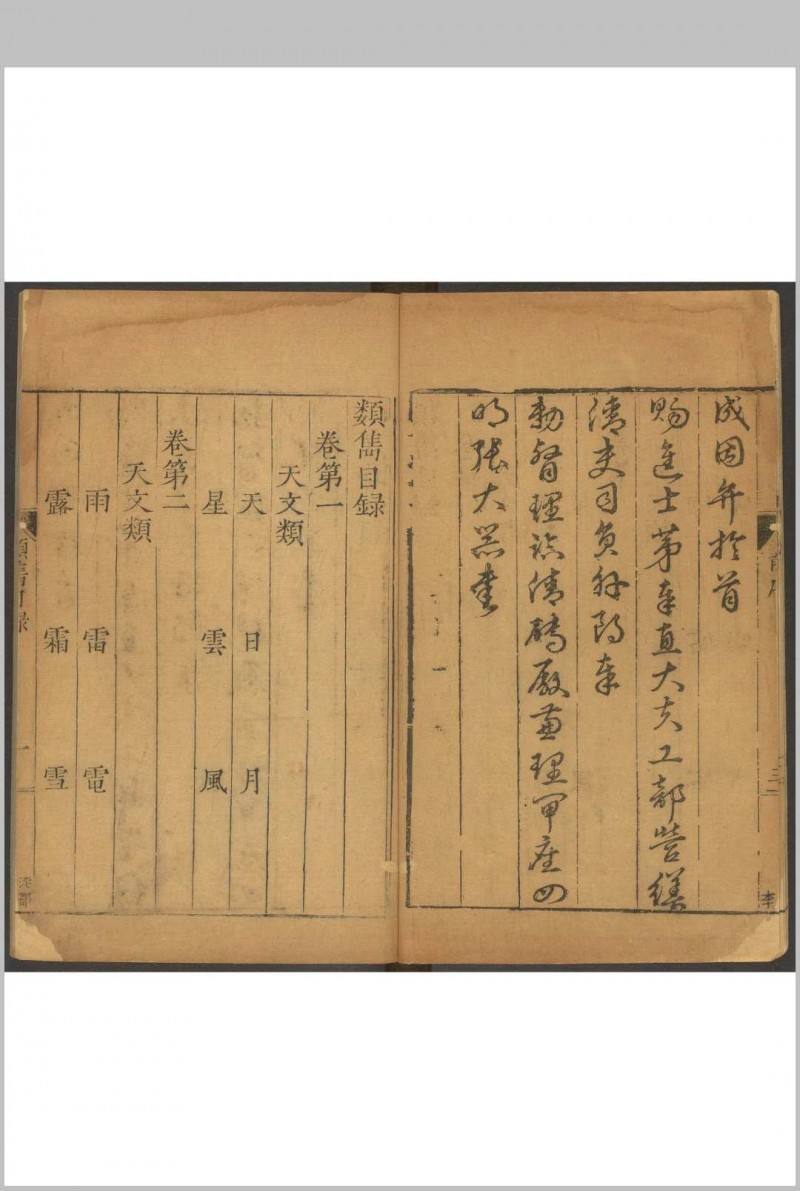 成因弁於首
賜進士第奉直大夫工部營繕
清吏司員外郎奉
勅督理臨清磚廠兼理閘座四
明張大器書
三
李
類雋目録
卷第一
天文類
天 日 月
星 雲 風
卷第二
天文類
雨 雷 電
露 霜 雪
類雋目録
一